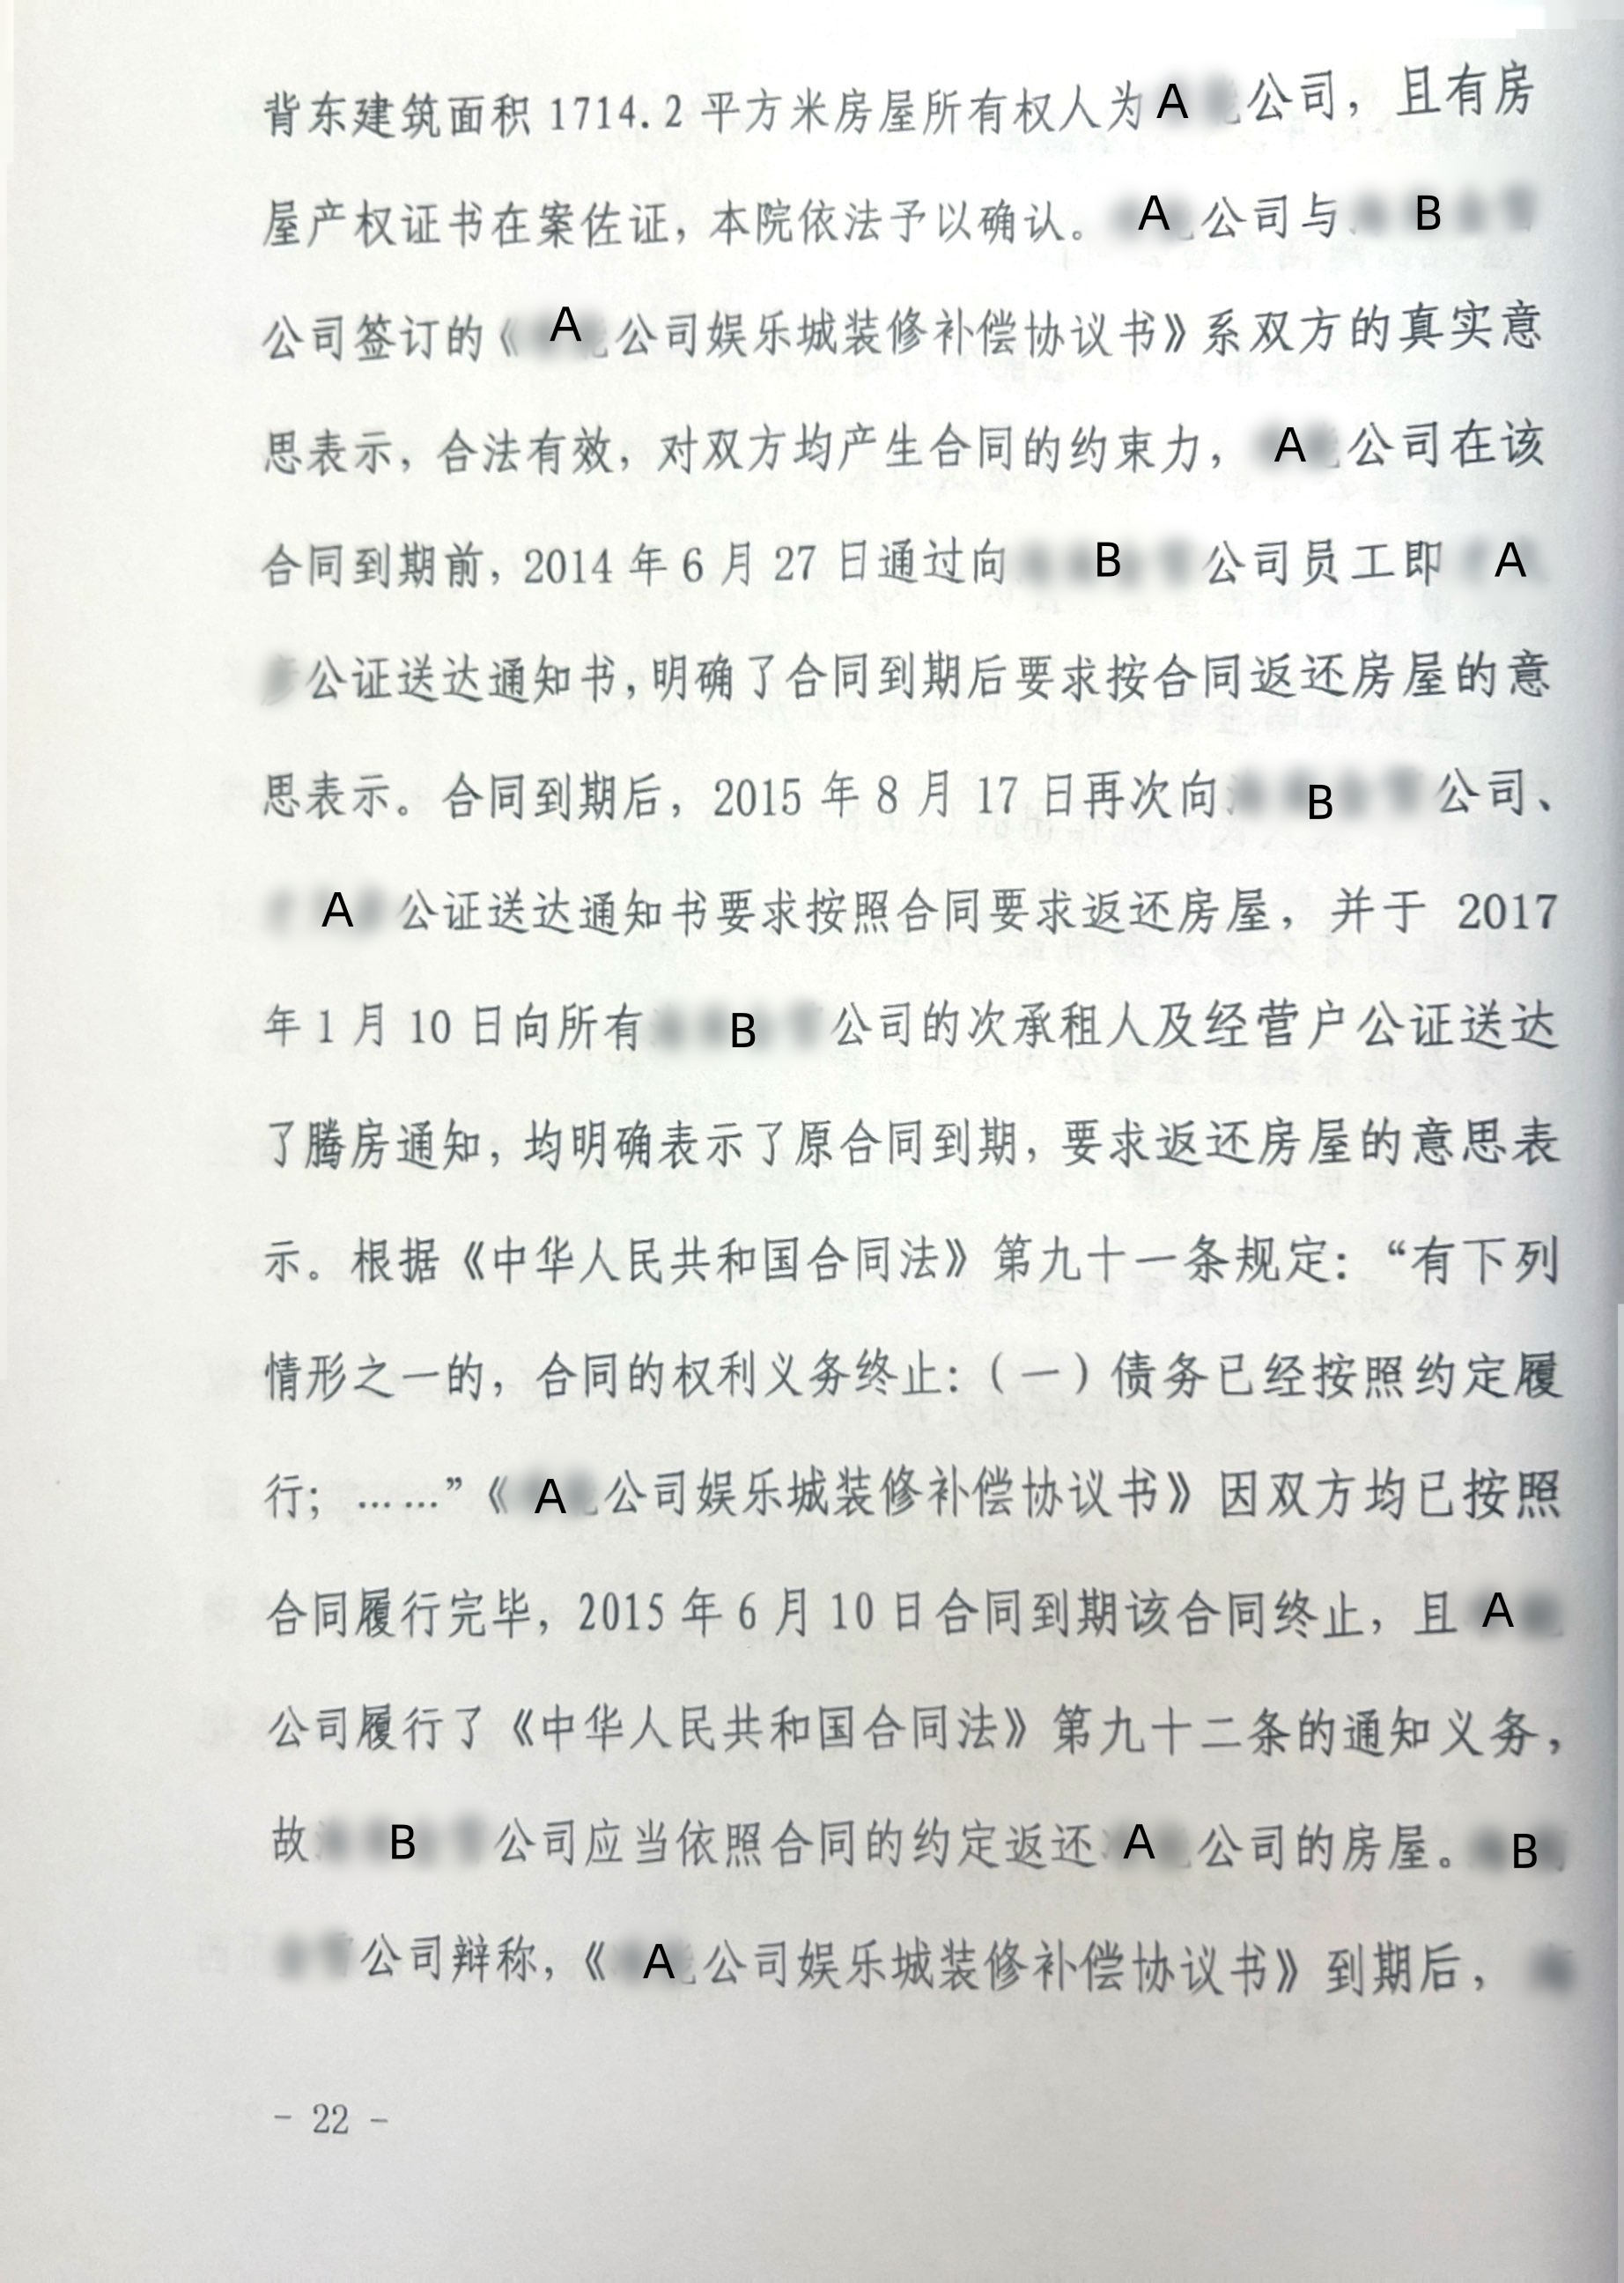 背东建筑面积 1714.2 平方米房屋所有权人为 A 公司，且有房
屋产权证书在案佐证，本院依法予以确认。 A 公司与 B
公司签订的《 A 公司娱乐城装修补偿协议书》系双方的真实意
思表示，合法有效，对双方均产生合同的约束力， A 公司在该
合同到期前，2014 年 6 月 27 日通过向 B 公司员工即 A
公证送达通知书，明确了合同到期后要求按合同返还房屋的意
思表示。合同到期后，2015 年 8 月 17 日再次向 B 公司、
A 公证送达通知书要求按照合同要求返还房屋，并于 2017
年 1 月 10 日向所有 B 公司的次承租人及经营户公证送达
了腾房通知，均明确表示了原合同到期，要求返还房屋的意思表
示。根据《中华人民共和国合同法》第九十一条规定：“有下列
情形之一的，合同的权利义务终止：（一）债务已经按照约定履
行；……”《 A 公司娱乐城装修补偿协议书》因双方均已按照
合同履行完毕，2015 年 6 月 10 日合同到期该合同终止，且 A
公司履行了《中华人民共和国合同法》第九十二条的通知义务，
故 B 公司应当依照合同的约定返还 A 公司的房屋。 B
公司辩称，《 A 公司娱乐城装修补偿协议书》到期后，
- 22 -